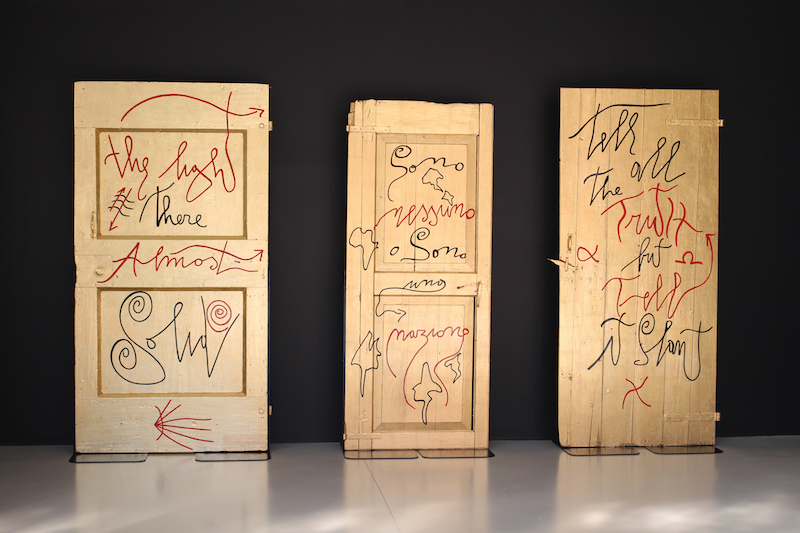 the light
there
Almost
Solid
Sono
nessuno
o Sono
una
nazione
Tell
all
the
Truth
but
α
Ω
Tell
it Slant